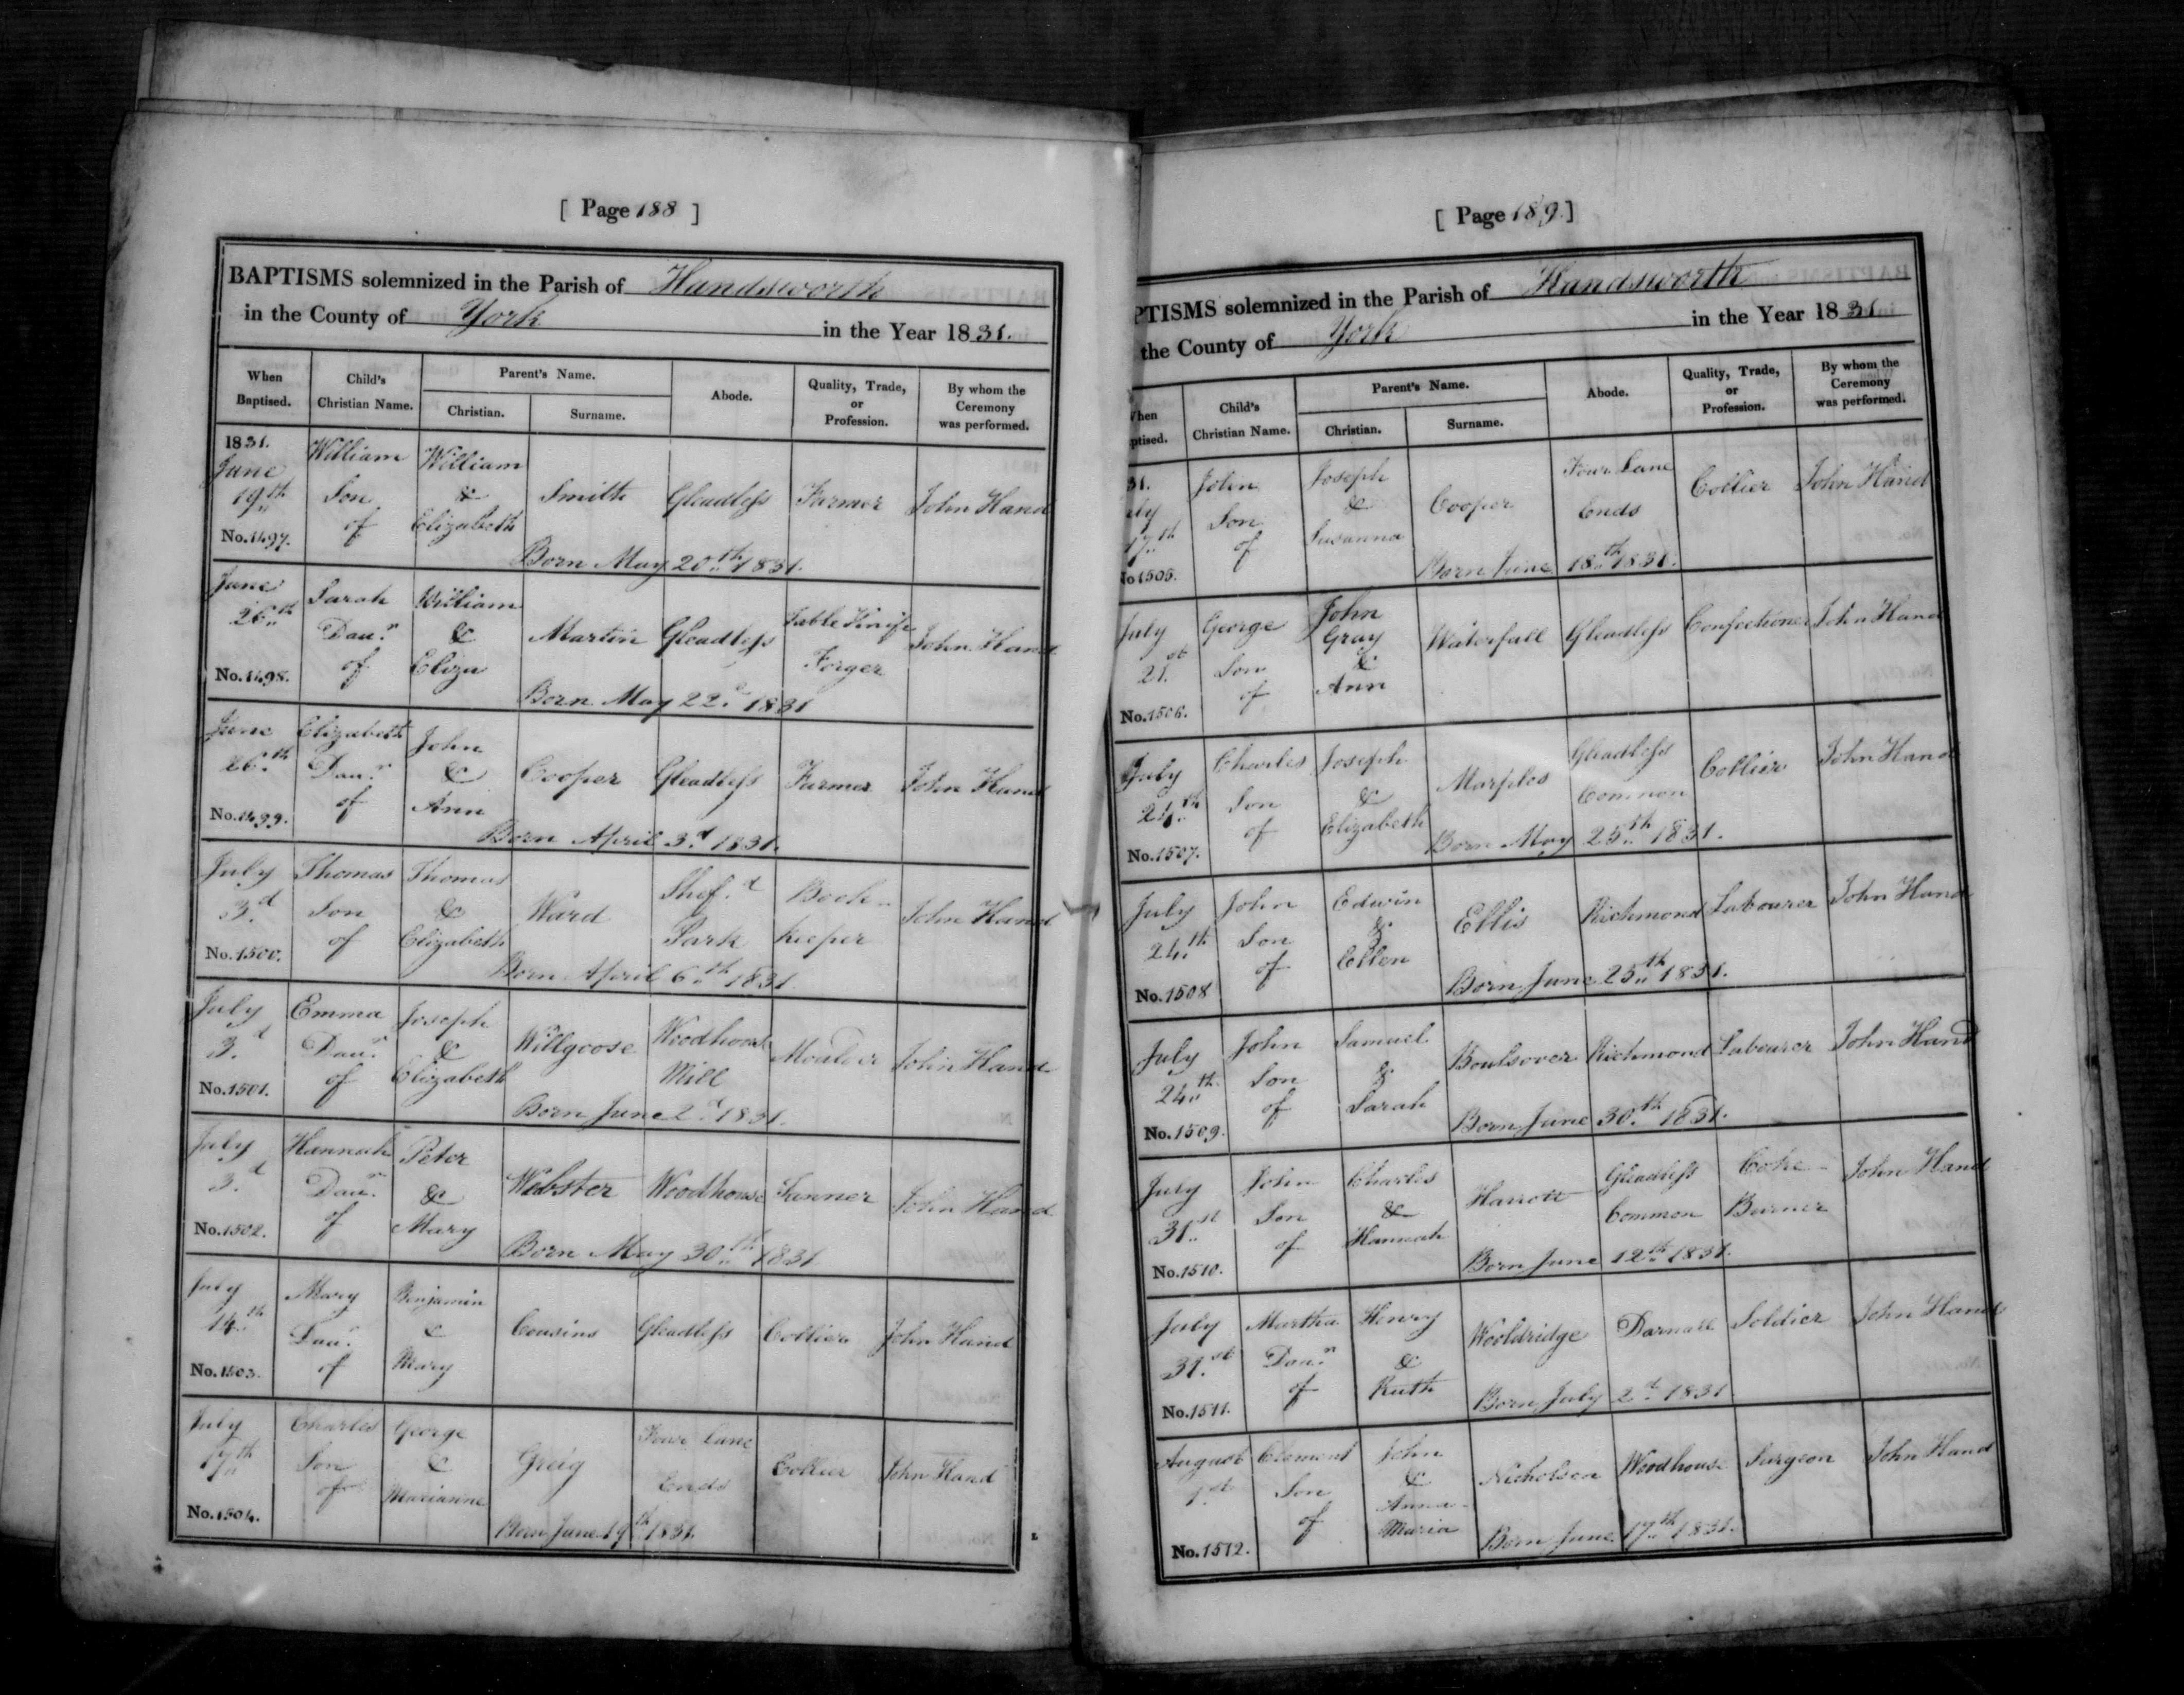 [ Page 188 ]
BAPTISMS solemnized in the Parish of Handsworth
in the County of York in the Year 1831.
When Baptised. Child's Christian Name. Parent's Name. Christian. Surname. Abode. Quality, Trade, or Profession. By whom the Ceremony was performed.
1831.
June 19th No. 1497. William Son of William & Elizabeth Smith Gleadless Farmer John Hand
Born May 20th 1831.
June 26th No. 1498. Sarah Daur. of William & Eliza Martin Gleadless Table Knife Forger John Hand
Born May 22d 1831
June 26th No. 1499. Elizabeth Daur. of John & Ann Cooper Gleadless Farmer John Hand
Born April 3d 1831.
July 3d No. 1500. Thomas Son of Thomas & Elizabeth Ward Shefd Park Book-keeper John Hand
Born April 6th 1831.
July 3d No. 1501. Emma Daur. of Joseph & Elizabeth Willgoose Woodhouse Mill Moulder John Hand
Born June 2d 1831.
July 3d No. 1502. Hannah Daur. of Peter & Mary Webster Woodhouse Tanner John Hand
Born May 30th 1831
July 14th No. 1503. Mary Daur. of Benjamin & Mary Cousins Gleadless Collier John Hand
July 17th No. 1504. Charles Son of George & Marianne Greig Four Lane Ends Collier John Hand
Born June 19th 1831.
[ Page 189. ]
PTISMS solemnized in the Parish of Handsworth
the County of York in the Year 1831
hen ptised. Child's Christian Name. Parent's Name. Christian. Surname. Abode. Quality, Trade, or Profession. By whom the Ceremony was performed.
31.
uly 17th No 1505. John Son of Joseph & Susanna Cooper Four Lane Ends Collier John Hand
Born June 18th 1831.
July 21st No. 1506. George Son of John Gray & Ann Waterfall Gleadless Confectioner John Hand
July 24th No. 1507. Charles Son of Joseph & Elizabeth Marples Gleadless Common Collier John Hand
Born May 25th 1831.
July 24th No. 1508 John Son of Edwin & Ellen Ellis Richmond Labourer John Hand
Born June 25th 1831.
July 24th No. 1509. John Son of Samuel & Sarah Boulsover Richmond Labourer John Hand
Born June 30th 1831.
July 31st No. 1510. John Son of Charles & Hannah Harrott Gleadless Common Coke-Burner John Hand
Born June 12th 1831.
July 31st No. 1511. Martha Daur. of Henry & Ruth Wooldridge Darnall Soldier John Hand
Born July 2d 1831
August 1st No. 1512. Clement Son of John & Anna-Maria Nicholson Woodhouse Surgeon John Hand
Born June 17th 1831.